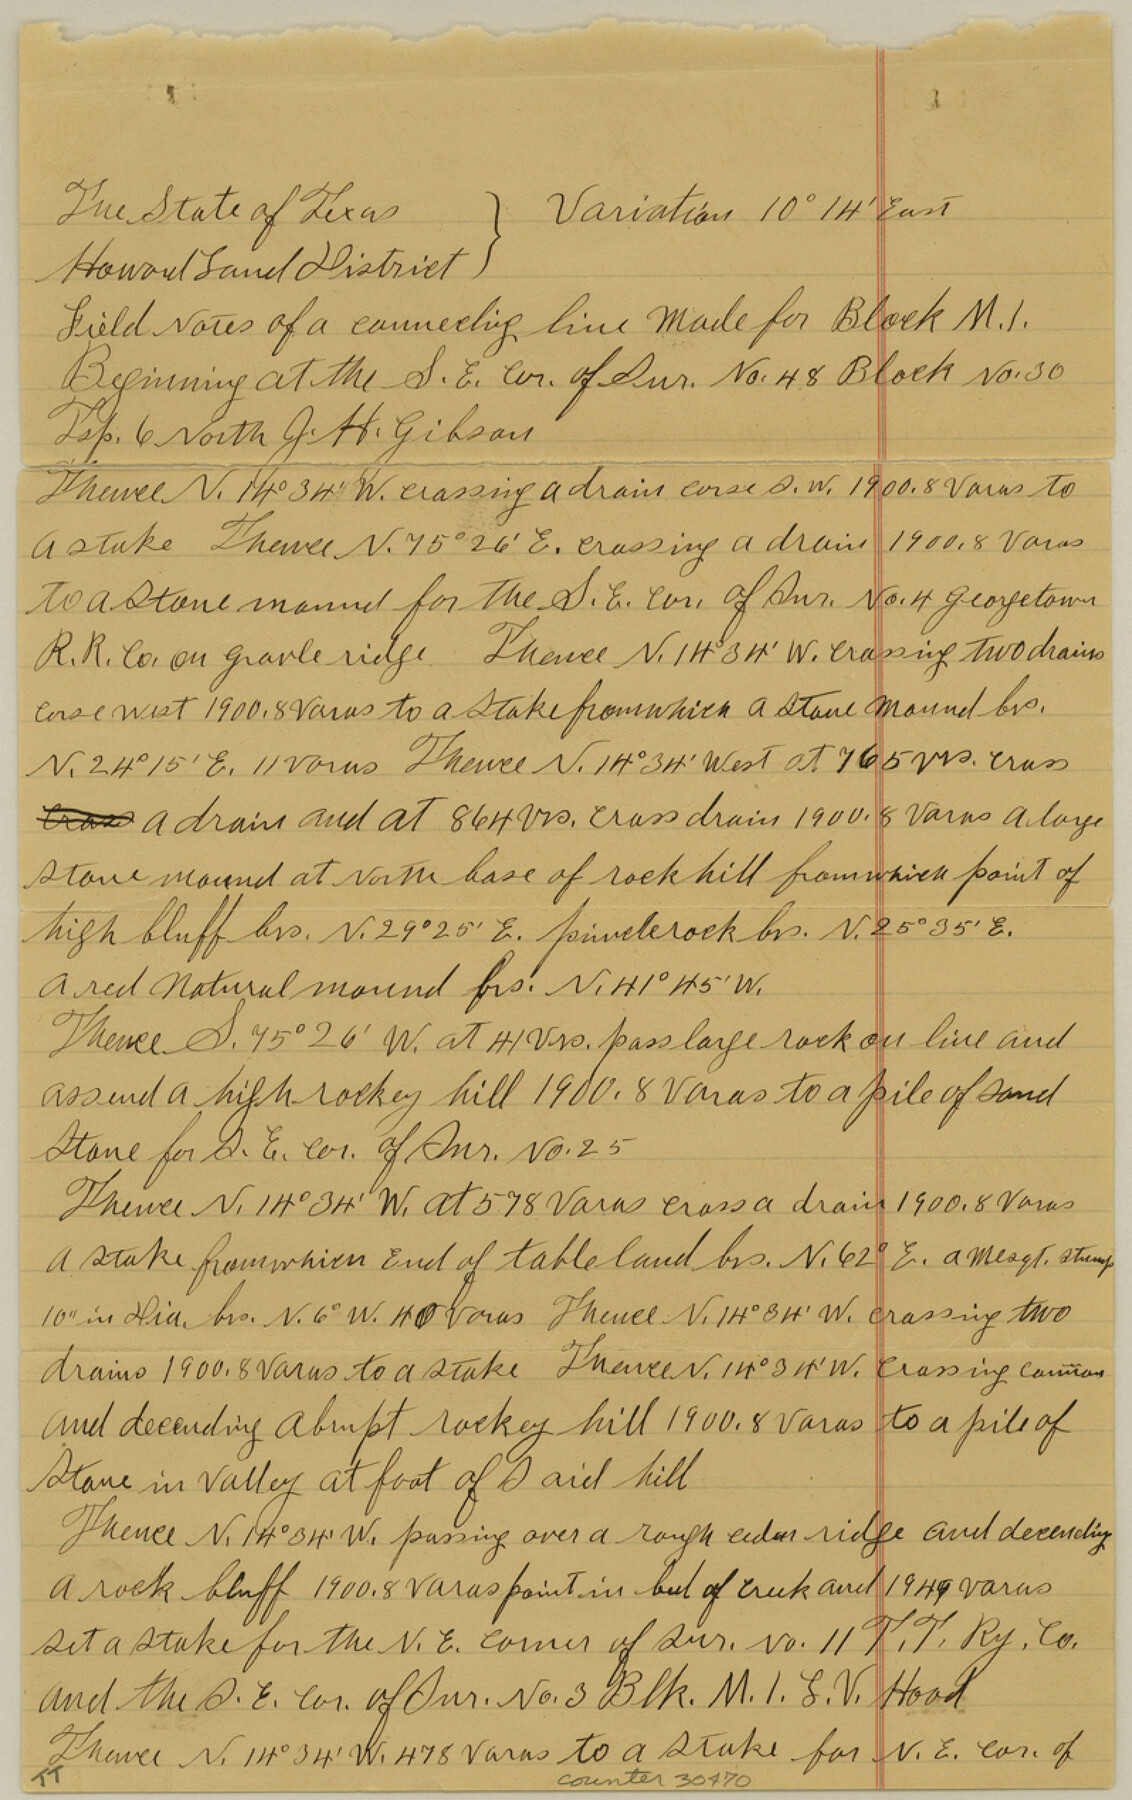 The State of Texas } Variation 10° 14' East
Howard Land District
Field Notes of a connecting line Made for Block M.1.
Beginning at the S. E. Cor. of Sur. No. 48 Block No. 30
Tsp. 6 North J. H. Gibson
Thence N. 14° 34' W. crossing a drain corse S. W. 1900.8 Varas to
a stake Thence N. 75° 26' E. crossing a drain 1900.8 Varas
to a Stone mound for the S. E. Cor. of Sur. No. 4 Georgetown
R. R. Co. on gravle ridge Thence N. 14° 34' W. crossing two drains
corse west 1900.8 Varas to a Stake from which a Stone Mound brs.
N. 24° 15' E. 11 varas Thence N. 14° 34' West at 765 vrs. cross
a drain and at 864 vrs. cross drain 1900.8 Varas a large
stone mound at North base of rock hill from which point of
high bluff brs. N. 29° 25' E. pinicle rock brs. N. 25° 35' E.
a red Natural mound brs. N. 41° 45' W.
Thence S. 75° 26' W. at 41 Vrs. pass large rock on line and
assend a high rockey hill 1900.8 Varas to a pile of sand
Stone for S. E. Cor. of Sur. No. 25
Thence N. 14° 34' W. at 578 Varas cross a drain 1900.8 Varas
a stake from which End of table land brs. N. 62° E. a Mesqt. stump
10" in Dia. brs. N. 6° W. 40 Varas Thence N. 14° 34' W. crossing two
drains 1900.8 Varas to a stake Thence N. 14° 34' W. crossing
and decending abrupt rockey hill 1900.8 Varas to a pile of
Stone in Valley at foot of Said hill
Thence N. 14° 34' W. passing over a rough cedar ridge and decending
a rock bluff 1900.8 Varas point in bed of creek and 1949 varas
set a stake for the N. E. Corner of Sur. No. 11 T. T. Ry. Co.
and the S. E. Cor. of Sur. No. 3 Blk. M. 1. L. V. Hood
Thence N. 14° 34' W. 478 Varas to a stake for N. E. Cor. of
TT counter 30470